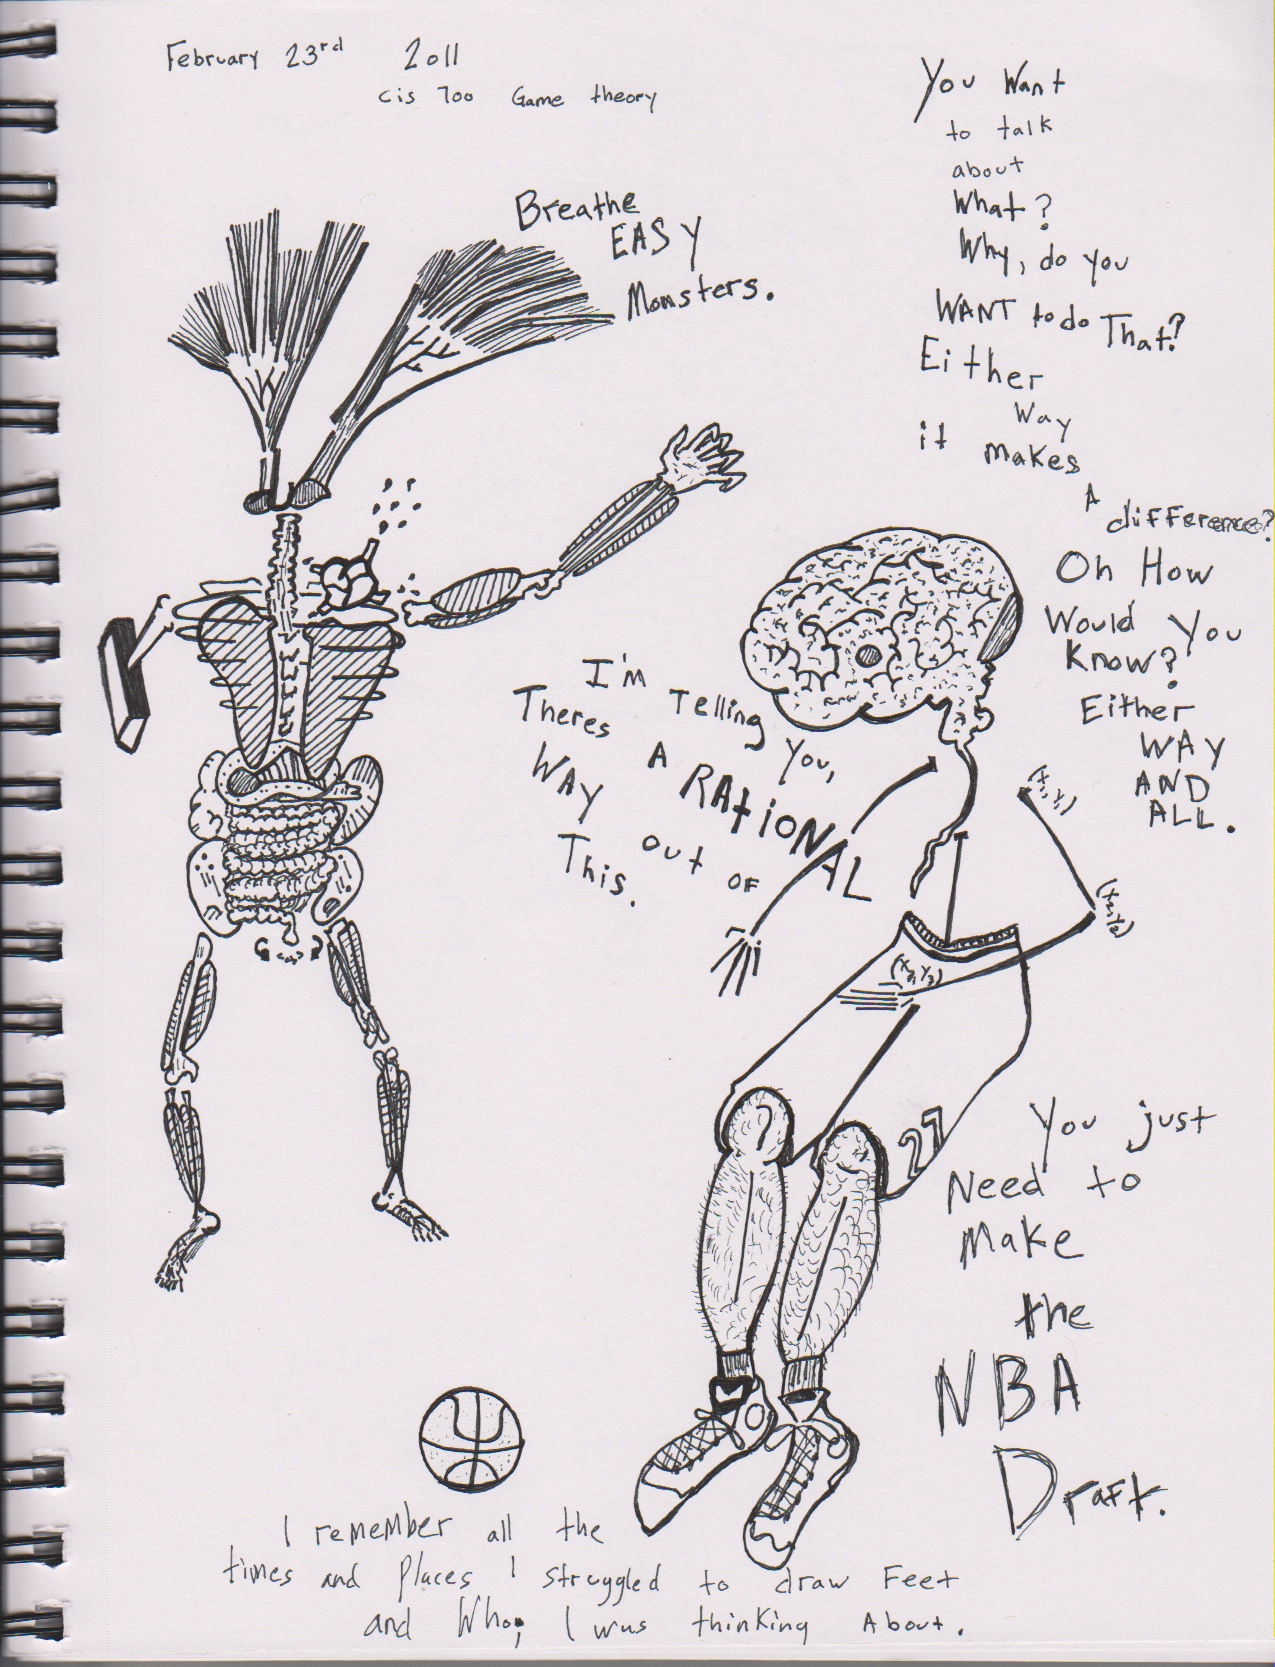 February 23rd 2011
cis 700 Game theory
Breathe
EASY
Monsters.
You Want
to talk
about
What?
Why, do you
WANT to do That?
Either
Way
it makes
A
difference?
Oh How
Would You
Know?
Either
WAY
AND
ALL.
I'm Telling You,
Theres A RATIONAL
WAY out OF
This.
(x,y,)
(x2,y2)
(x3,y3)
27
You just
Need to
Make
the
NBA
Draft.
I remember all the
times and places I struggled to draw Feet
and Who, I was thinking About.